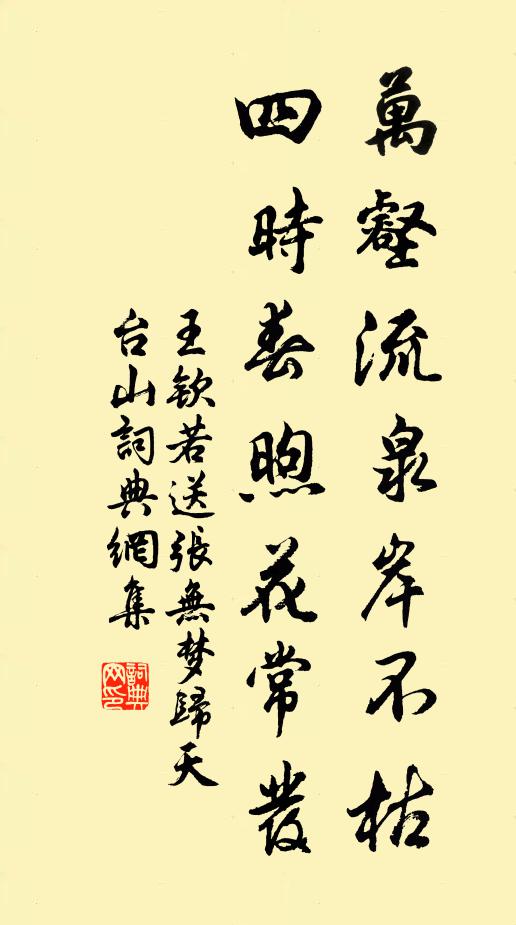 萬壑流泉岸不枯
四時春煦花常發
王欽若送張無梦歸天
台山詞典網集
詞典
网印